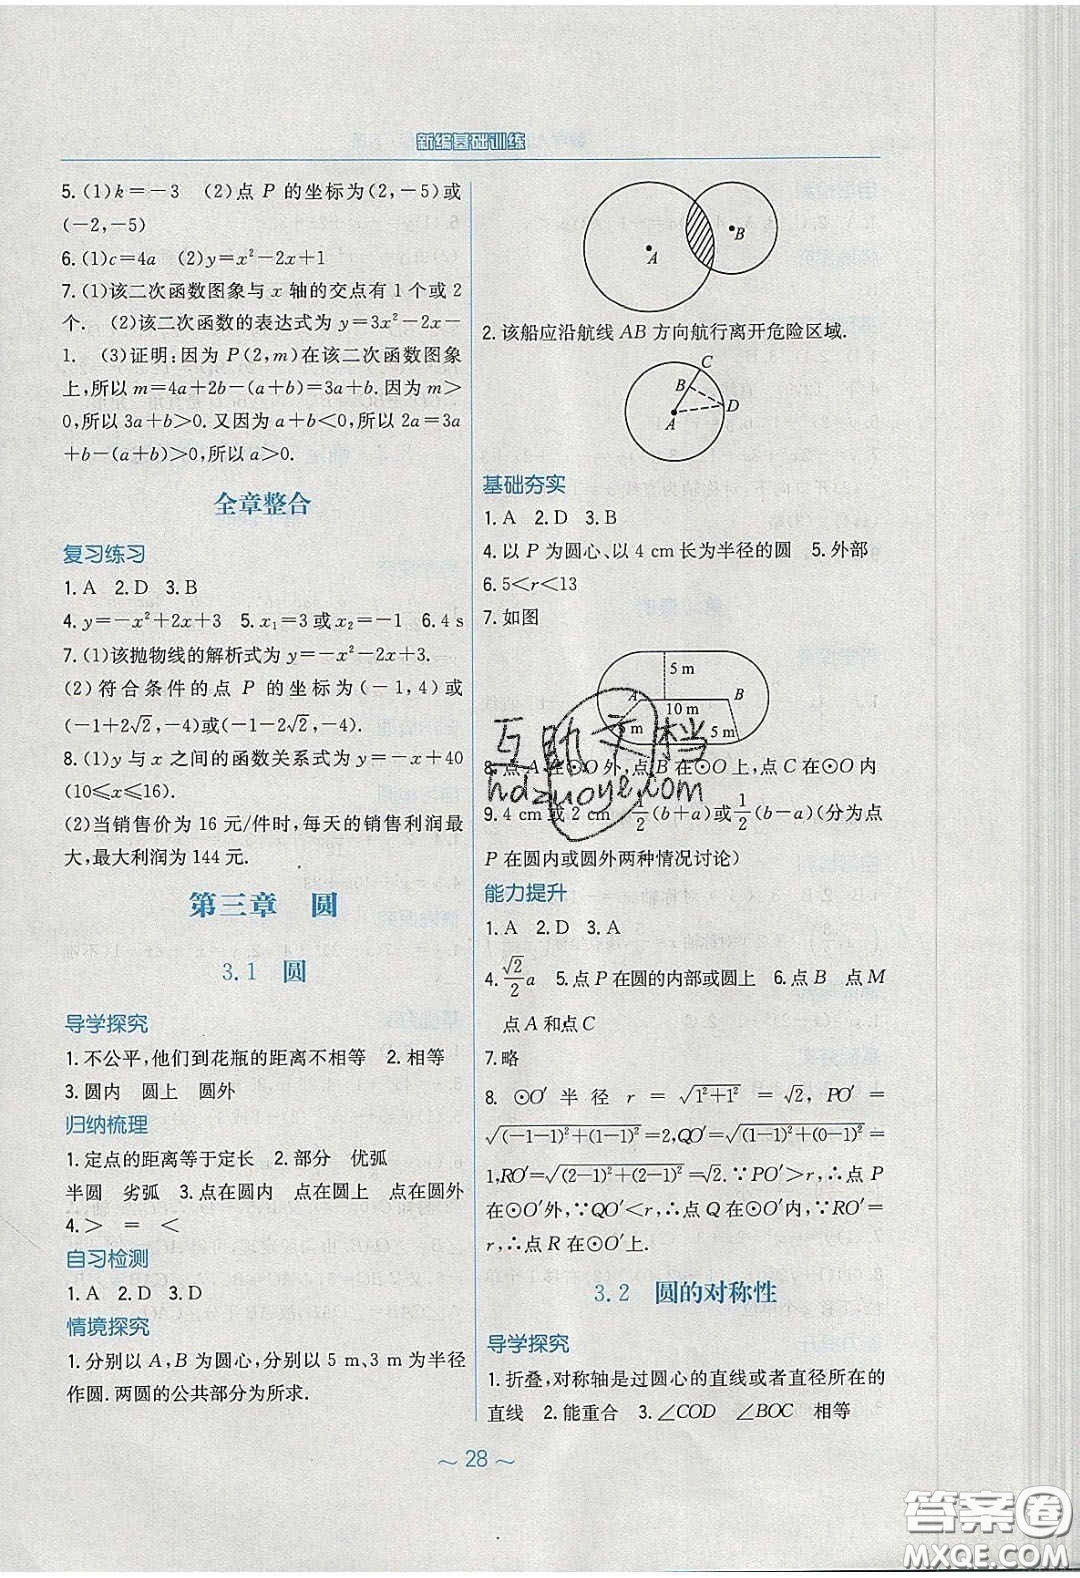 新编基础训练
5.(1)k=−3　(2)点 P 的坐标为(2,−5)或
(−2,−5)
6.(1)c=4a　(2)y=x²−2x+1
7.(1)该二次函数图象与 x 轴的交点有 1 个或 2
个.　(2)该二次函数的表达式为 y=3x²−2x−
1.　(3)证明:因为 P(2,m)在该二次函数图象
上,所以 m=4a+2b−(a+b)=3a+b.因为 m>
0,所以 3a+b>0.又因为 a+b<0,所以 2a=3a
+b−(a+b)>0,所以 a>0.
全章整合
复习练习
1.A　2.D　3.B
4.y=−x²+2x+3　5.x₁=3 或 x₂=−1　6.4 s
7.(1)该抛物线的解析式为 y=−x²−2x+3.
(2)符合条件的点 P 的坐标为(−1,4)或
(−1+2√2,−4)或(−1−2√2,−4).
8.(1)y 与 x 之间的函数关系式为 y=−x+40
(10≤x≤16).
(2)当销售价为 16 元/件时,每天的销售利润最
大,最大利润为 144 元.
第三章　圆
3.1　圆
导学探究
1.不公平,他们到花瓶的距离不相等　2.相等
3.圆内　圆上　圆外
归纳梳理
1.定点的距离等于定长　2.部分　优弧
半圆　劣弧　3.点在圆内　点在圆上　点在圆外
4.>　=　<
自习检测
1.A　2.D　3.D
情境探究
1.分别以 A,B 为圆心,分别以 5 m,3 m 为半径
作圆.两圆的公共部分为所求.
A
B
2.该船应沿航线 AB 方向航行离开危险区域.
C
B
D
A
基础夯实
1.A　2.D　3.B
4.以 P 为圆心、以 4 cm 长为半径的圆　5.外部
6.5<r<13
7.如图
5 m
A
B
10 m
m
5 m
8.点 A 在⊙O 外,点 B 在⊙O 上,点 C 在⊙O 内
9.4 cm 或 2 cm　1/2(b+a)或1/2(b−a)(分为点
P 在圆内或圆外两种情况讨论)
能力提升
1.A　2.D　3.A
4.√2/2 a　5.点 P 在圆的内部或圆上　6.点 B　点 M
点 A 和点 C
7.略
8.⊙O′半径 r=√(1²+1²)=√2,PO′=
√((−1−1)²+(1−1)²)=2,QO′=√((1−1)²+(0−1)²)=
1,RO′=√((2−1)²+(2−1)²)=√2.∵PO′>r,∴点 P
在⊙O′外,∵QO′<r,∴点 Q 在⊙O′内,∵RO′=
r,∴点 R 在⊙O′上.
3.2　圆的对称性
导学探究
1.折叠,对称轴是过圆心的直线或者直径所在的
直线　2.能重合　3.∠COD　∠BOC　相等
~ 28 ~
互助文档
hdzuoye.com
答案圈
MXQE.COM